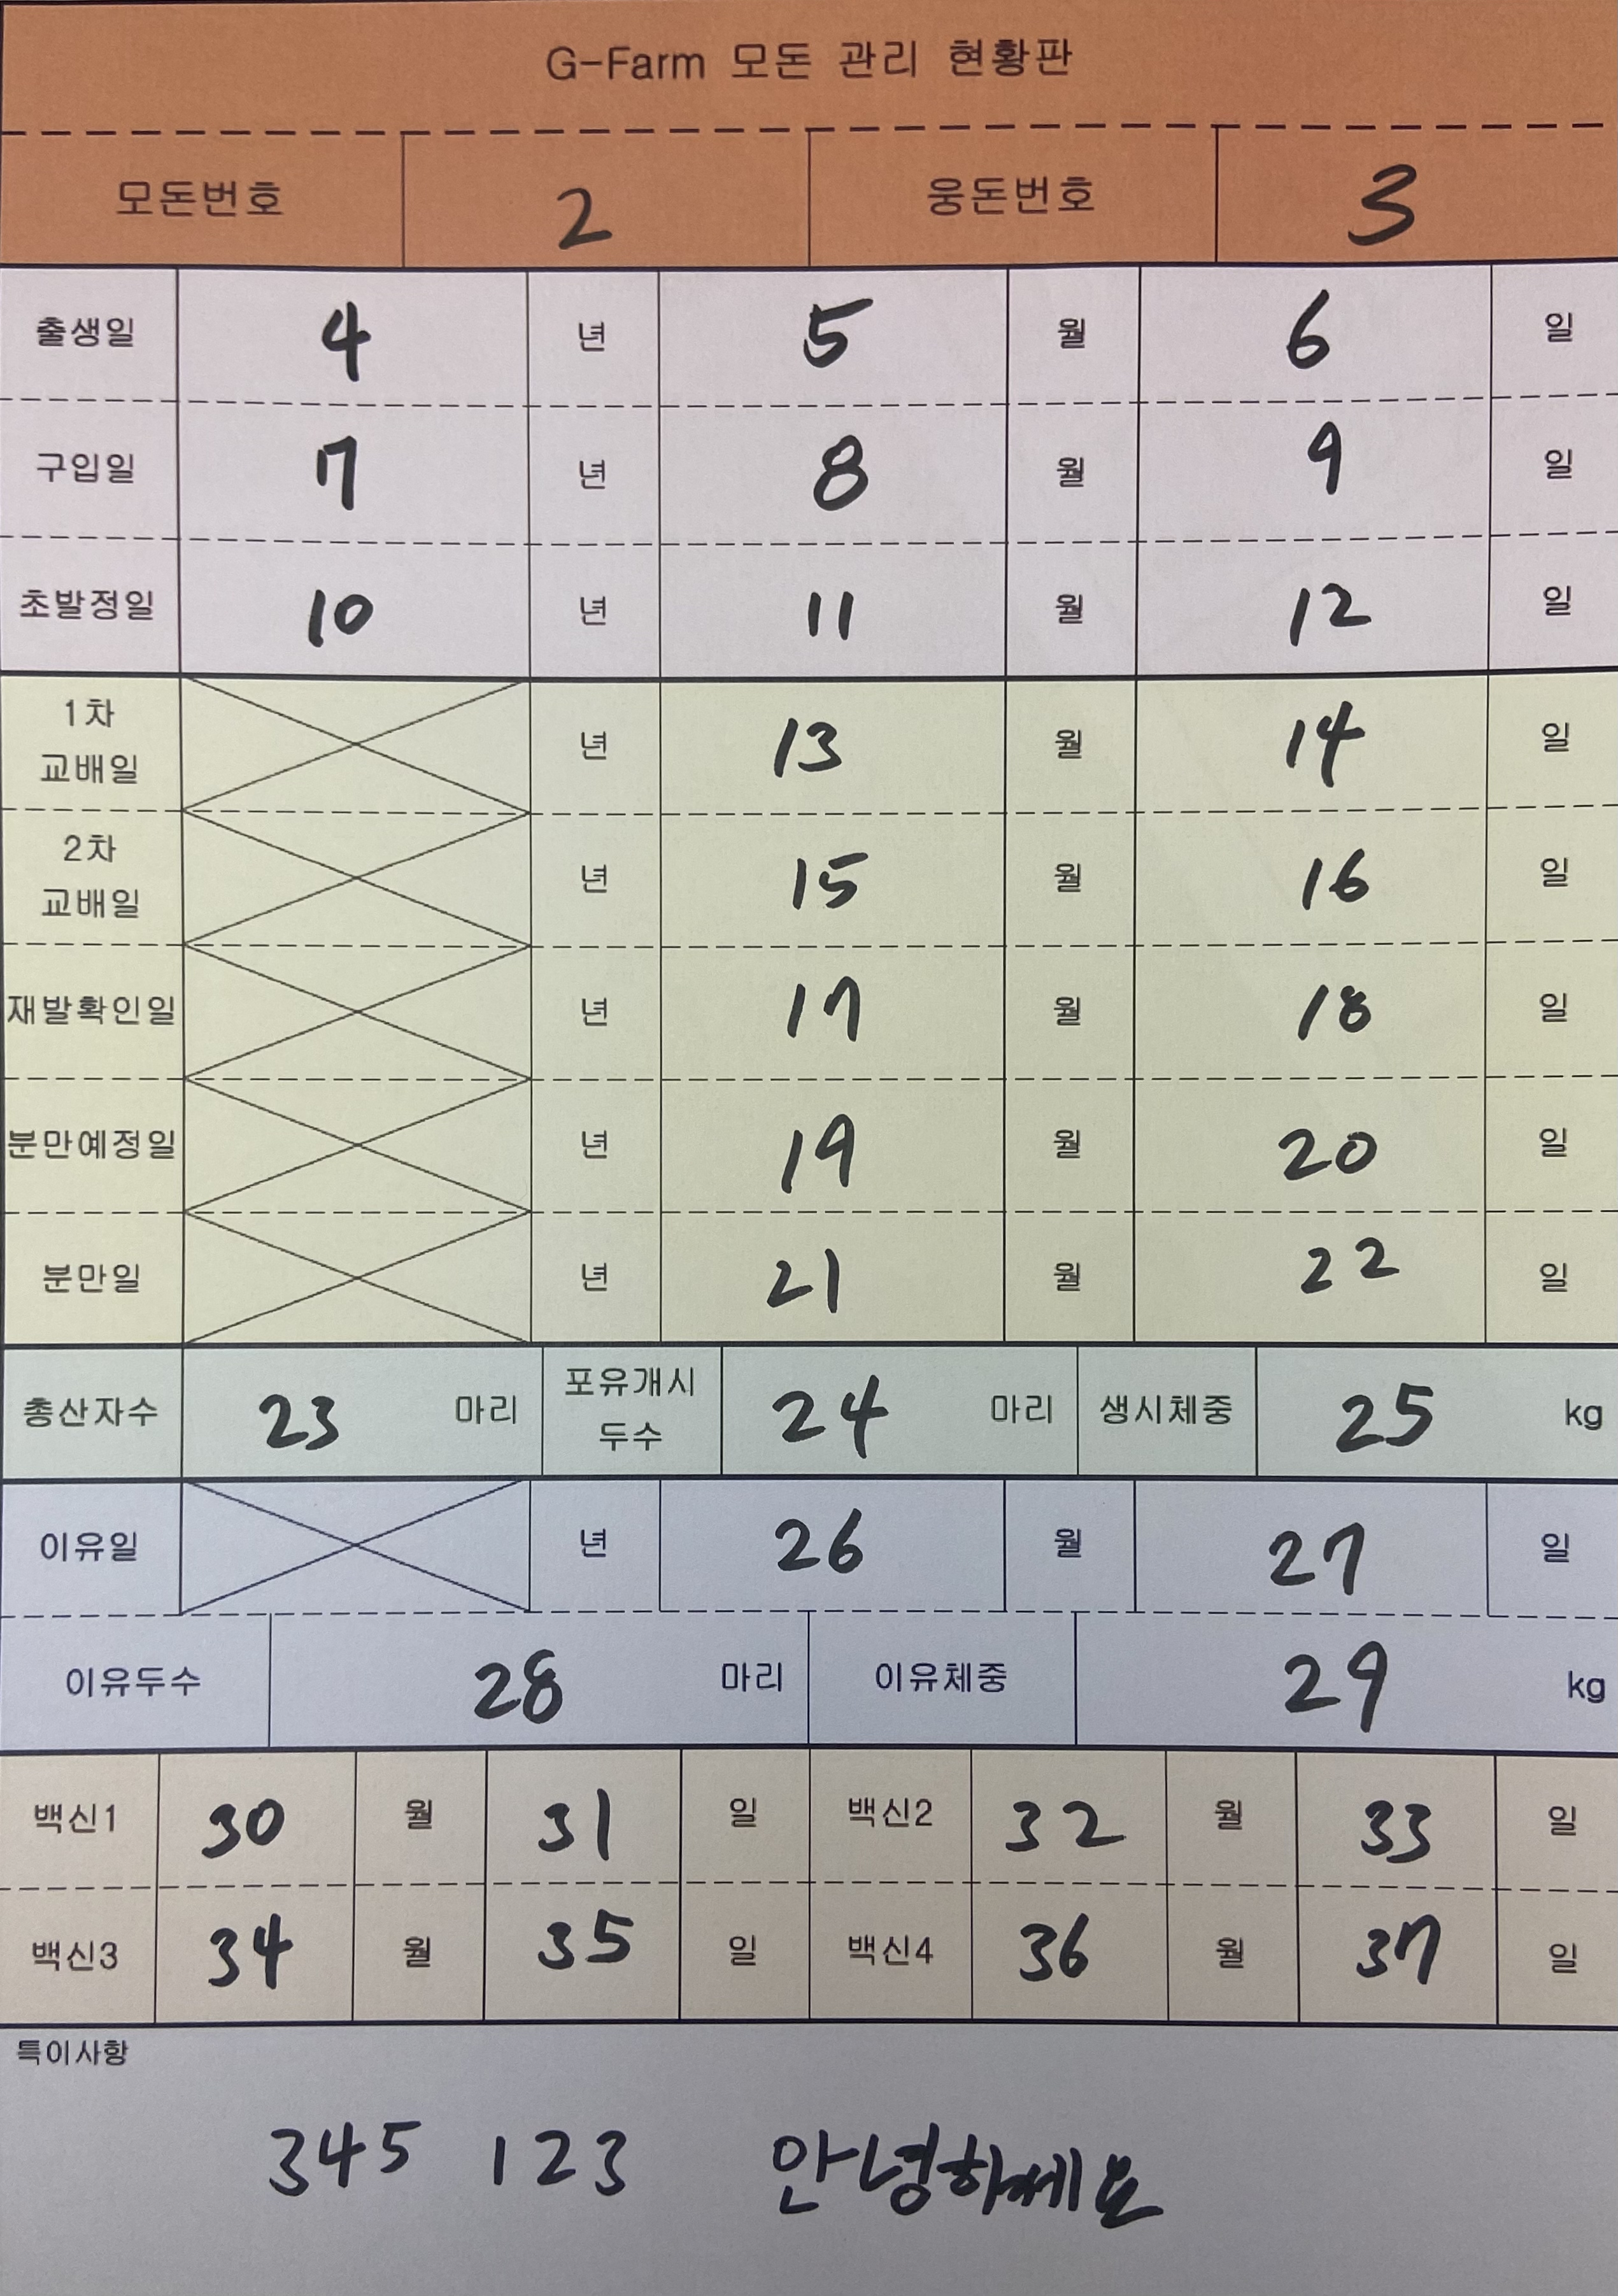 G-Farm 모돈 관리 현황판
모돈번호 2 웅돈번호 3
출생일 4 년 5 월 6 일
구입일 7 년 8 월 9 일
초발정일 10 년 11 월 12 일
1차
교배일 년 13 월 14 일
2차
교배일 년 15 월 16 일
재발확인일 년 17 월 18 일
분만예정일 년 19 월 20 일
분만일 년 21 월 22 일
총산자수 23 마리 포유개시
두수 24 마리 생시체중 25 kg
이유일 년 26 월 27 일
이유두수 28 마리 이유체중 29 kg
백신1 30 월 31 일 백신2 32 월 33 일
백신3 34 월 35 일 백신4 36 월 37 일
특이사항
345 123 안녕하세요